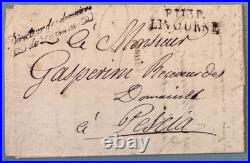 Direction des domaines
de Livourne
P.113.P.
LIVOURNE
à Monsieur
Gasperini Receveur des
Domaines
à Pescia